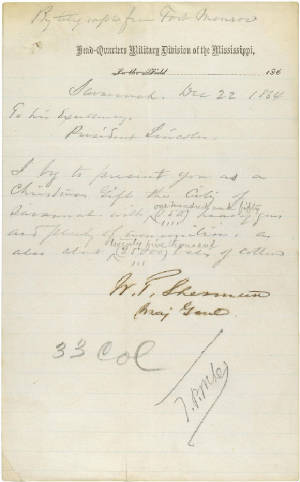 By telegraph from Fort Monroe
Head-Quarters Military Division of the Mississippi,
In the Field 186
Savannah, Dec 22 1864
To his Excellency,
President Lincoln.
I beg to present you as a
Christmas Gift the City of
one hundred and fifty
Savannah with (150) heavy guns
and plenty of ammunition, &
twenty five thousand
also about (25,000) bales of cotton
W. T. Sherman
Maj Genl.
33 Col